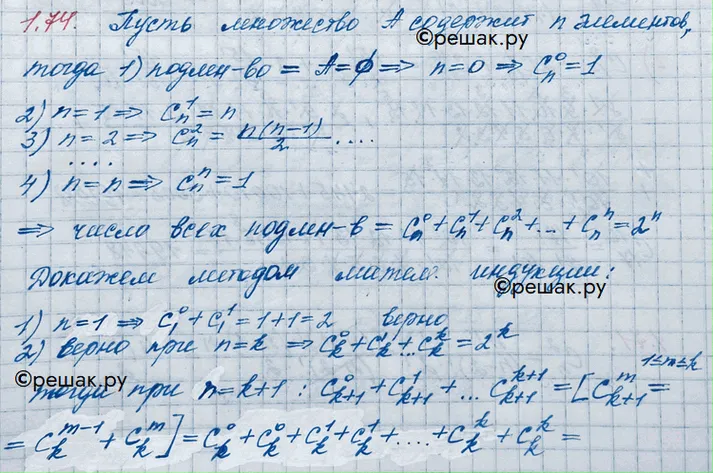 1.74. Пусть множество A содержит n элементов,
©решак.ру
тогда 1) подмн-во = A = ∅ ⇒ n=0 ⇒ C_n^0 = 1
2) n=1 ⇒ C_n^1 = n
3) n=2 ⇒ C_n^2 = n(n-1)/2 ....
....
4) n=n ⇒ C_n^n = 1
⇒ число всех подмн-в = C_n^0 + C_n^1 + C_n^2 + ... + C_n^n = 2^n
Докажем методом матем. индукции:
©решак.ру
1) n=1 ⇒ C_1^0 + C_1^1 = 1+1 = 2 верно
2) верно при n=k ⇒ C_k^0 + C_k^1 + ... C_k^k = 2^k
©решак.ру
тогда при n=k+1 : C_{k+1}^0 + C_{k+1}^1 + ... C_{k+1}^{k+1} = [C_{k+1}^m = 1≤m≤k
= C_k^{m-1} + C_k^m] = C_k^0 + C_k^0 + C_k^1 + C_k^1 + .... + C_k^k + C_k^k =